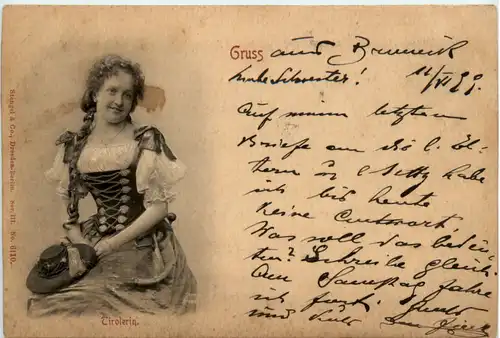 Gruss aus Bruneck
11/VI 99.
liebe Schwester!
Auf meinen letzten
Briefe an die l. El-
tern u. Netty habe
ich bis heute
keine Antwort,
Was soll das bedeu-
ten? Schreibe gleich.
Am Samstag fahre
ich fort. Gruß
und Kuß
Tirolerin.
Stengel & Co., Dresden-Berlin. Ser. III. No. 6110.